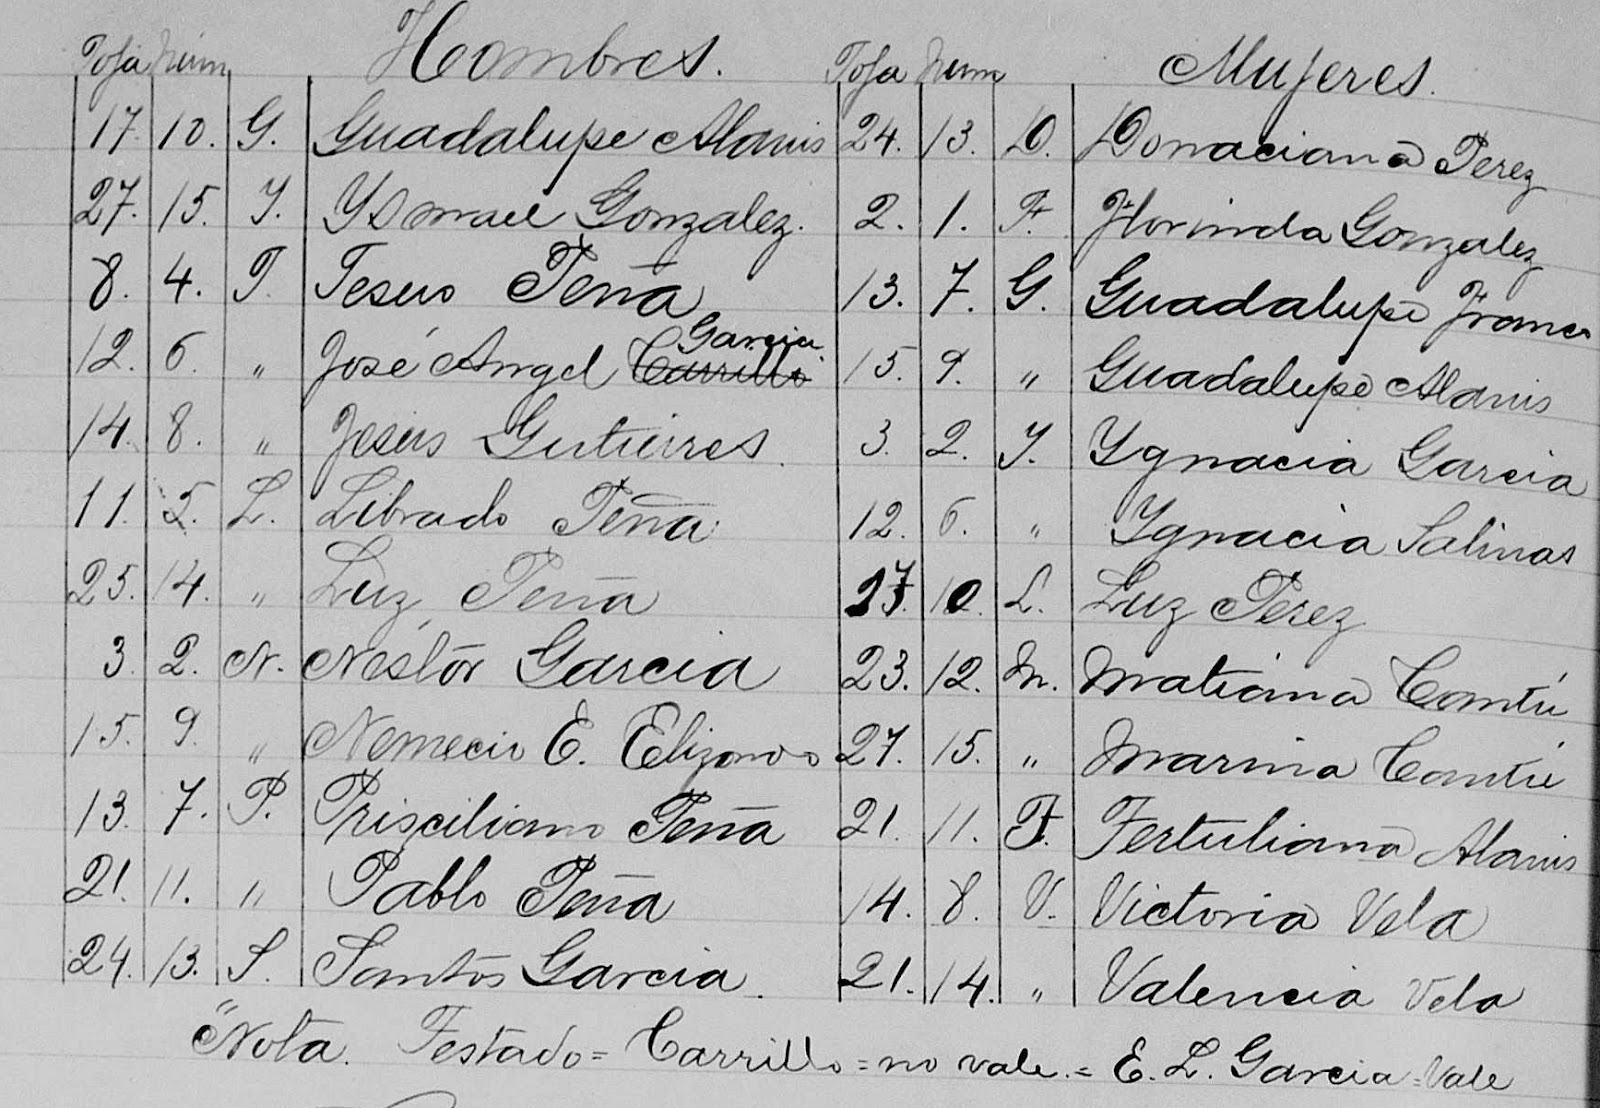 Foja Núm Hombres. Foja Núm Mujeres.
17. 10. G. Guadalupe Alanis 24. 13. D. Donaciana Perez
27. 15. Y. Ysmael Gonzalez. 2. 1. F. Florinda Gonzalez
8. 4. J. Jesus Peña 13. 7. G. Guadalupe Franco
12. 6. " José Angel Carrillo Garcia 15. 9. " Guadalupe Alanis
14. 8. " Jesús Gutierres. 3. 2. Y. Ygnacia Garcia
11. 5. L. Librado Peña. 12. 6. " Ygnacia Salinas
25. 14. " Luz Peña 10. L. Luz Perez
3. 2. N. Néstor Garcia 23. 12. M. Matiana Cantú
15. 9. " Nemecio E. Elizondo 27. 15. " Marina Cantú
13. 7. P. Prisciliano Peña 21. 11. T. Tertuliana Alanis
21. 11. " Pablo Peña 14. 8. V. Victoria Vela
24. 13. S. Santos Garcia. 21. 14. " Valencia Vela
"Nota. Testado = Carrillo = no vale. = E. L. Garcia = Vale